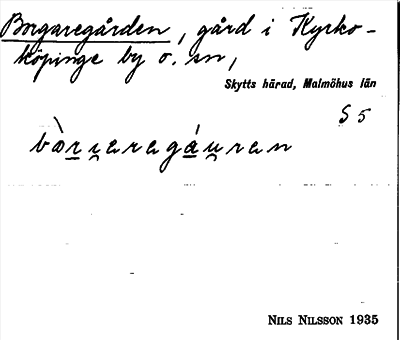 Borgaregården, gård i Kyrko-
köpinge by o. sn,
Skytts härad, Malmöhus län
S 5
bòr̲i̯aregá̲u̯ran
NILS NILSSON 1935